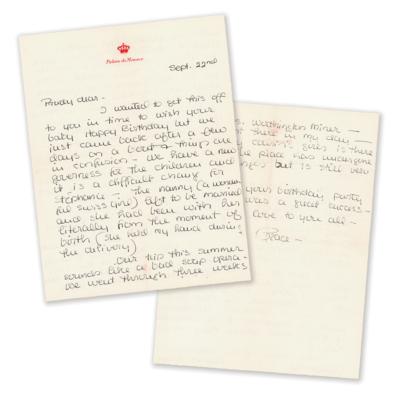 Palais de Monaco
Sept. 22nd
Prudy dear-
I wanted to get this off
to you in time to wish your
baby Happy Birthday but we
just came back after a few
days on a boat & things are
in confusion - We have a new
governess for the children and
it is a difficult change for
Stephanie - The nanny (a wonder-
ful swiss girl) left to be married
and she had been with her
literally from the moment of
birth (she held my hand during
the delivery)
Our trip this summer
sounds like a bad soap opera -
we went through three weeks
Worthington Miner -
there in my day -
girls is there
place has undergone
but is still very
your birthday party
was a great success -
Love to you all -
Grace -